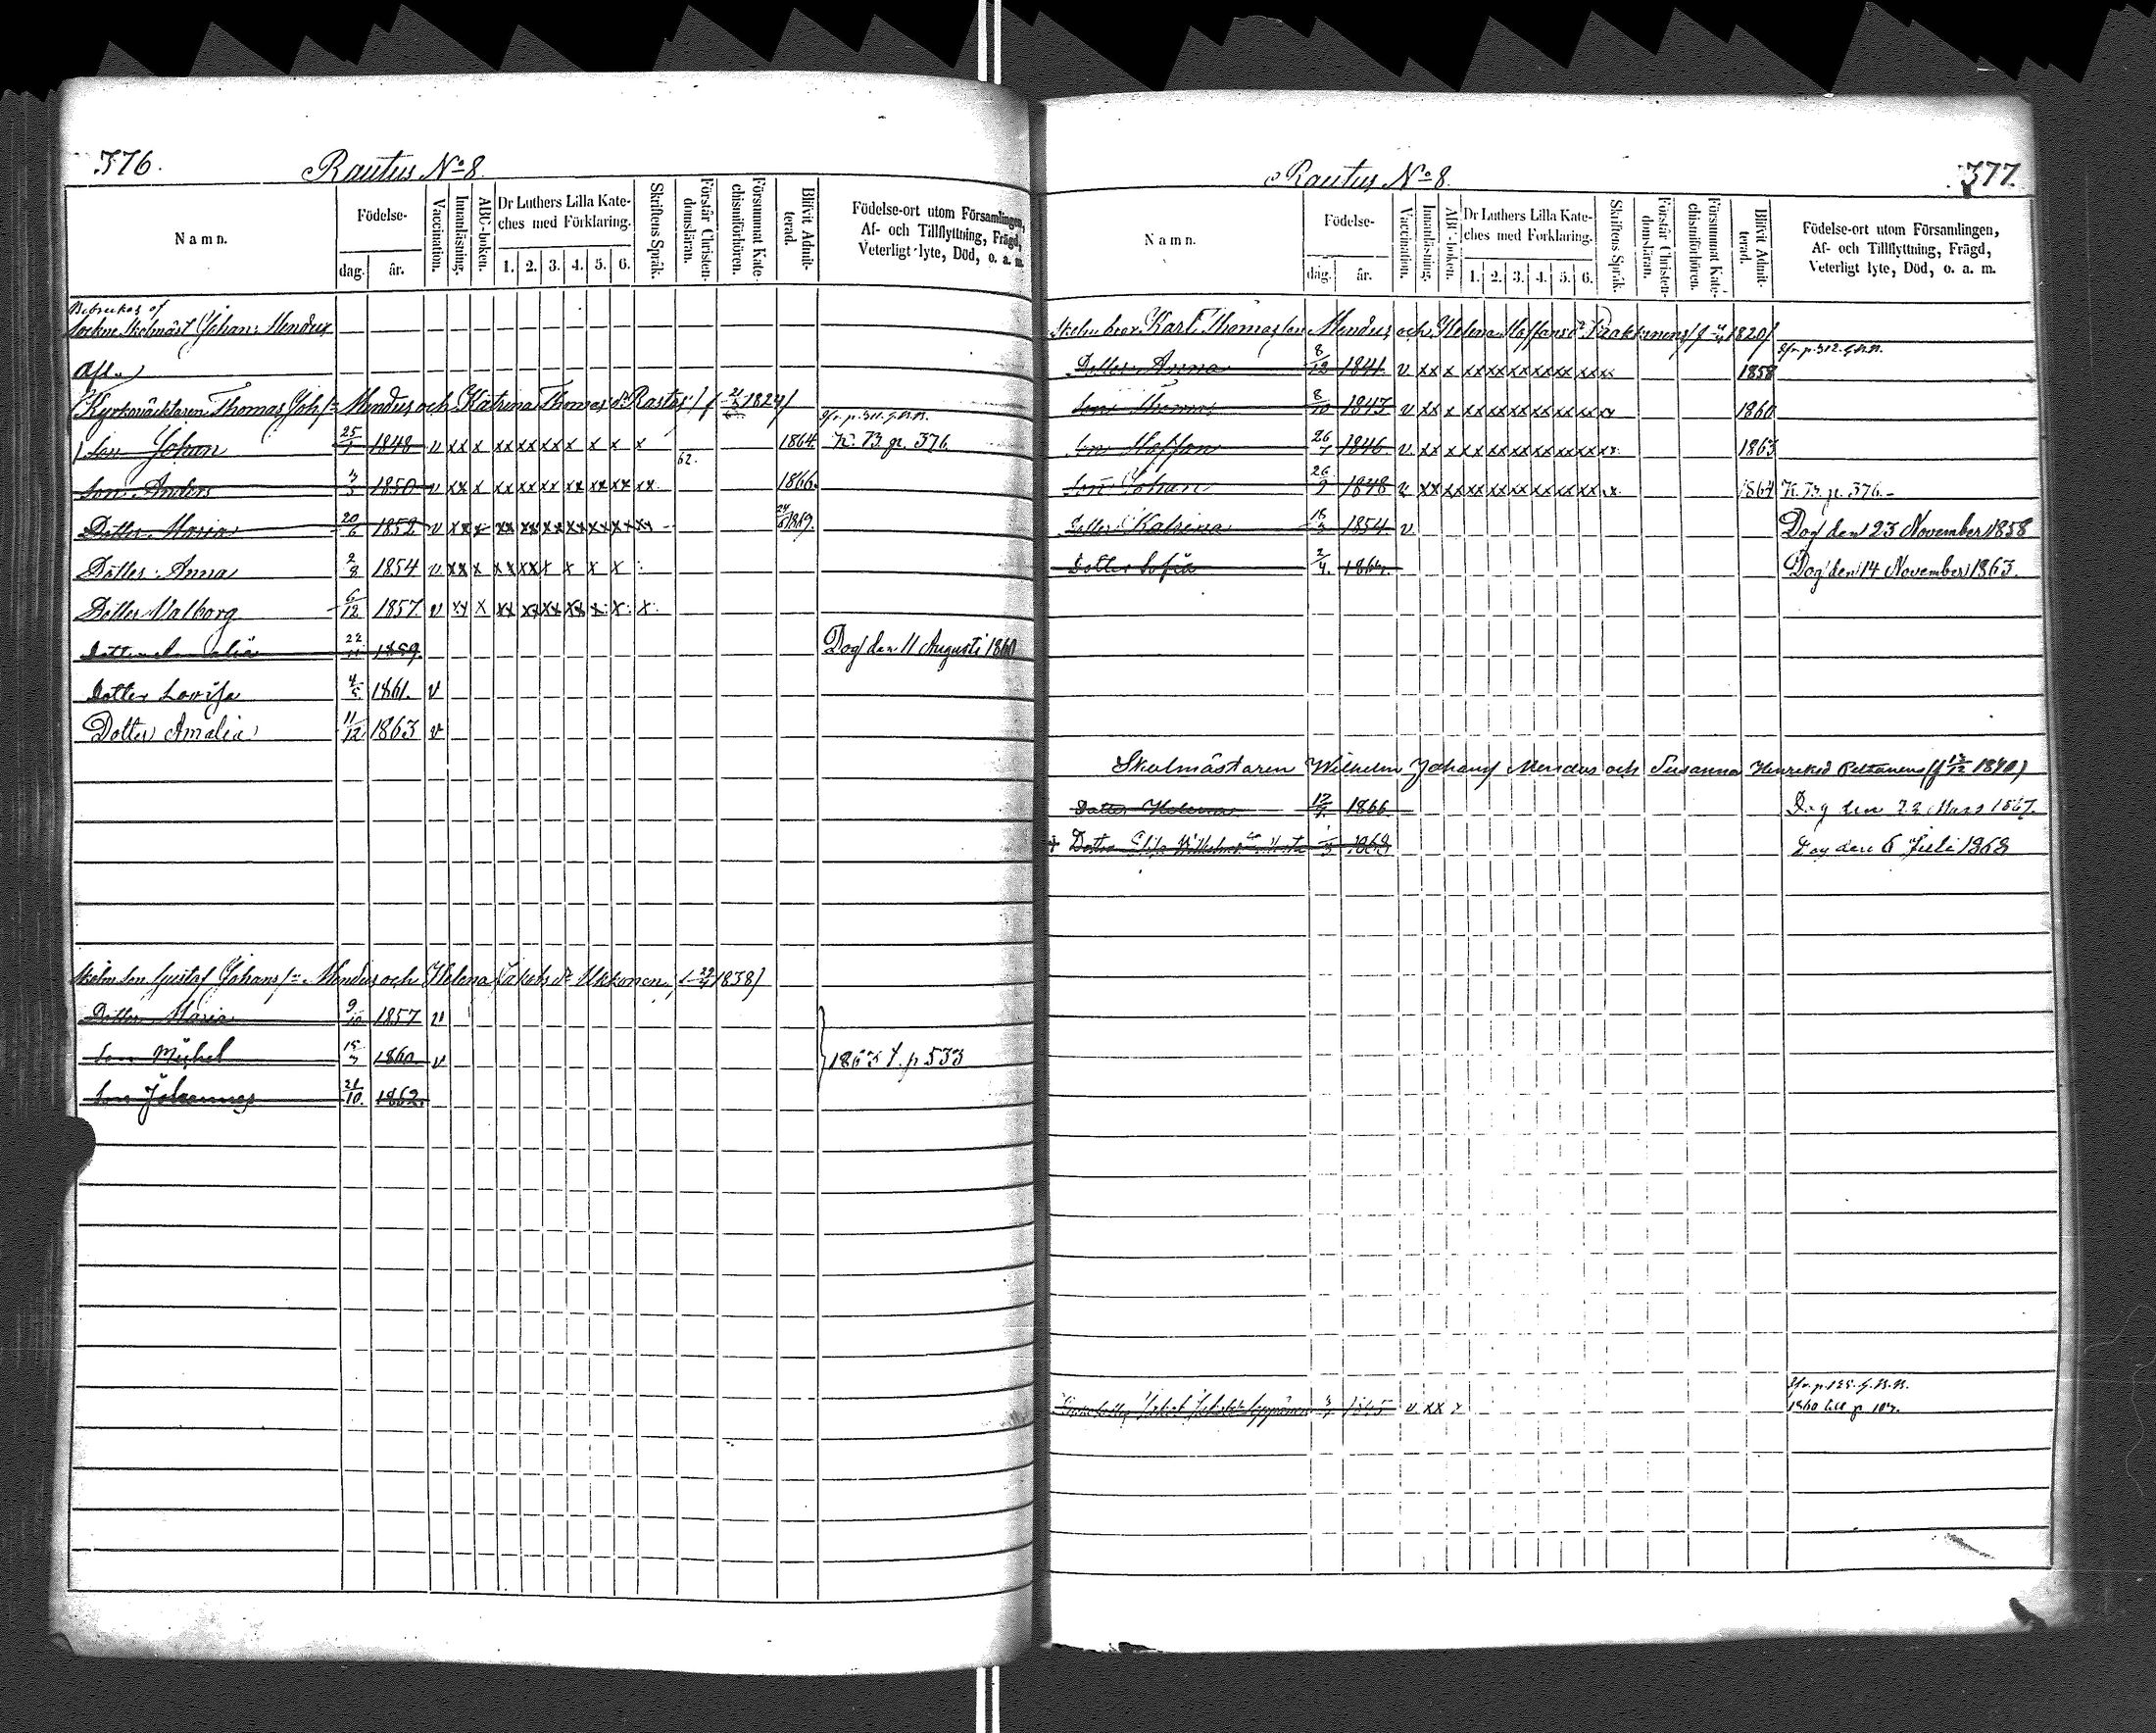 376.
Rautus No 8.
Namn.
Födelse-
dag. år.
Vaccination.
Innanläsning.
ABC-boken.
Dr Luthers Lilla Kate-
ches med Förklaring.
1. 2. 3. 4. 5. 6.
Skriftens Språk.
Förstår Christen-
domsläran.
Försummat Kate-
chismiförhören.
Blifvit Admit-
terad.
Födelse-ort utom Församlingen,
Af- och Tillflyttning, Frägd,
Veterligt lyte, Död, o. a. m.
Brukas af
Johan Mendus
Afl.
Kyrkoväktaren Thomas Joh. Mendus och Katrina Thomas dr Rastas 1824
Son Johan 25/1 1848 v xx x xx xx xx x x x x 1864 K. B. p. 376
62.
Son Anders 3/5 1850 v xx x xx xx xx xx xx xx xx 1866.
Dotter Maria 20/6 1852 v xx x xx xx xx xx xx xx 1869.
Dotter Anna 2/8 1854 v xx x xx xx x x x x
Dotter Valborg 6/12 1857 v xx x xx xx xx xx x x x
Dotter 22/11 1859. Dog den 11 Augusti 1860
Dotter Lovisa 4/5 1861. v
Dotter Amalia 11/12 1863 v
Gustaf Johans Mendus och Helena Jakobs dr Ukkonen 1838
Dotter Maria 9/10 1857 v
Son Michel 15/7 1860 v 1863 t. p 533
Son Johannes 21/10. 1862.
377.
Rautus No 8.
Namn.
Födelse-
dag. år.
Vaccination.
Innanläsning.
ABC-boken.
Dr Luthers Lilla Kate-
ches med Förklaring.
1. 2. 3. 4. 5. 6.
Skriftens Språk.
Förstår Christen-
domsläran.
Försummat Kate-
chismiförhören.
Blifvit Admit-
terad.
Födelse-ort utom Församlingen,
Af- och Tillflyttning, Frägd,
Veterligt lyte, Död, o. a. m.
Karl Thomasson Mendus och Helena Staffans dr 1820
p. 312.
Dotter Anna 8/12 1841 v xx x xx xx xx xx xx xx 1858
Son Thomas 8/10 1843 v xx x xx xx xx xx xx xx x 1860
Son Staffan 26/7 1846 v xx x xx xx xx xx xx xx 1863
Son Johan 26/9 1848 v xx xx xx xx xx xx xx x 1864 K. B. p. 376.
Dotter Katrina 1854 v Dog den 23 November 1858
Dotter Sofia 2/4. Dog den 14 November 1863.
Skolmästaren Wilhelm Johans Mendus och Susanna Henriksd Peltonens 1840
Dotter Helena 1866 Dog den 22 Mars 1867.
Dotter 1868 Dog den 6 Juli 1868
1845 v xx x
1860 till p.